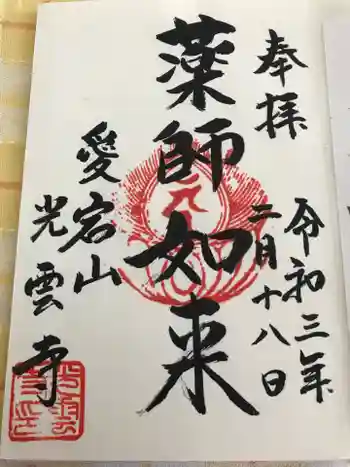 奉拝
令和三年
二月十八日
薬師如来
愛宕山
光雲寺